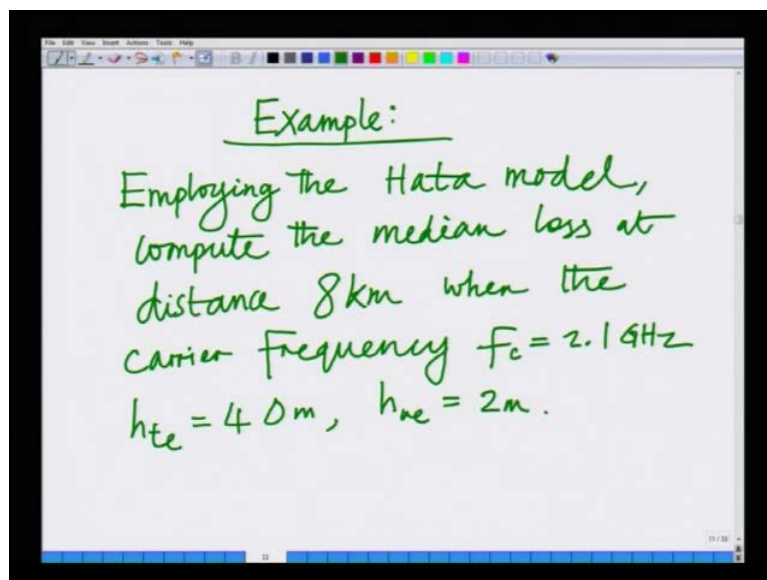 File Edit View Insert Actions Tools Help
Example:
Employing the Hata model,
compute the median loss at
distance 8km when the
carrier frequency fc = 2.1 GHz
hte = 40m, hre = 2m.
11